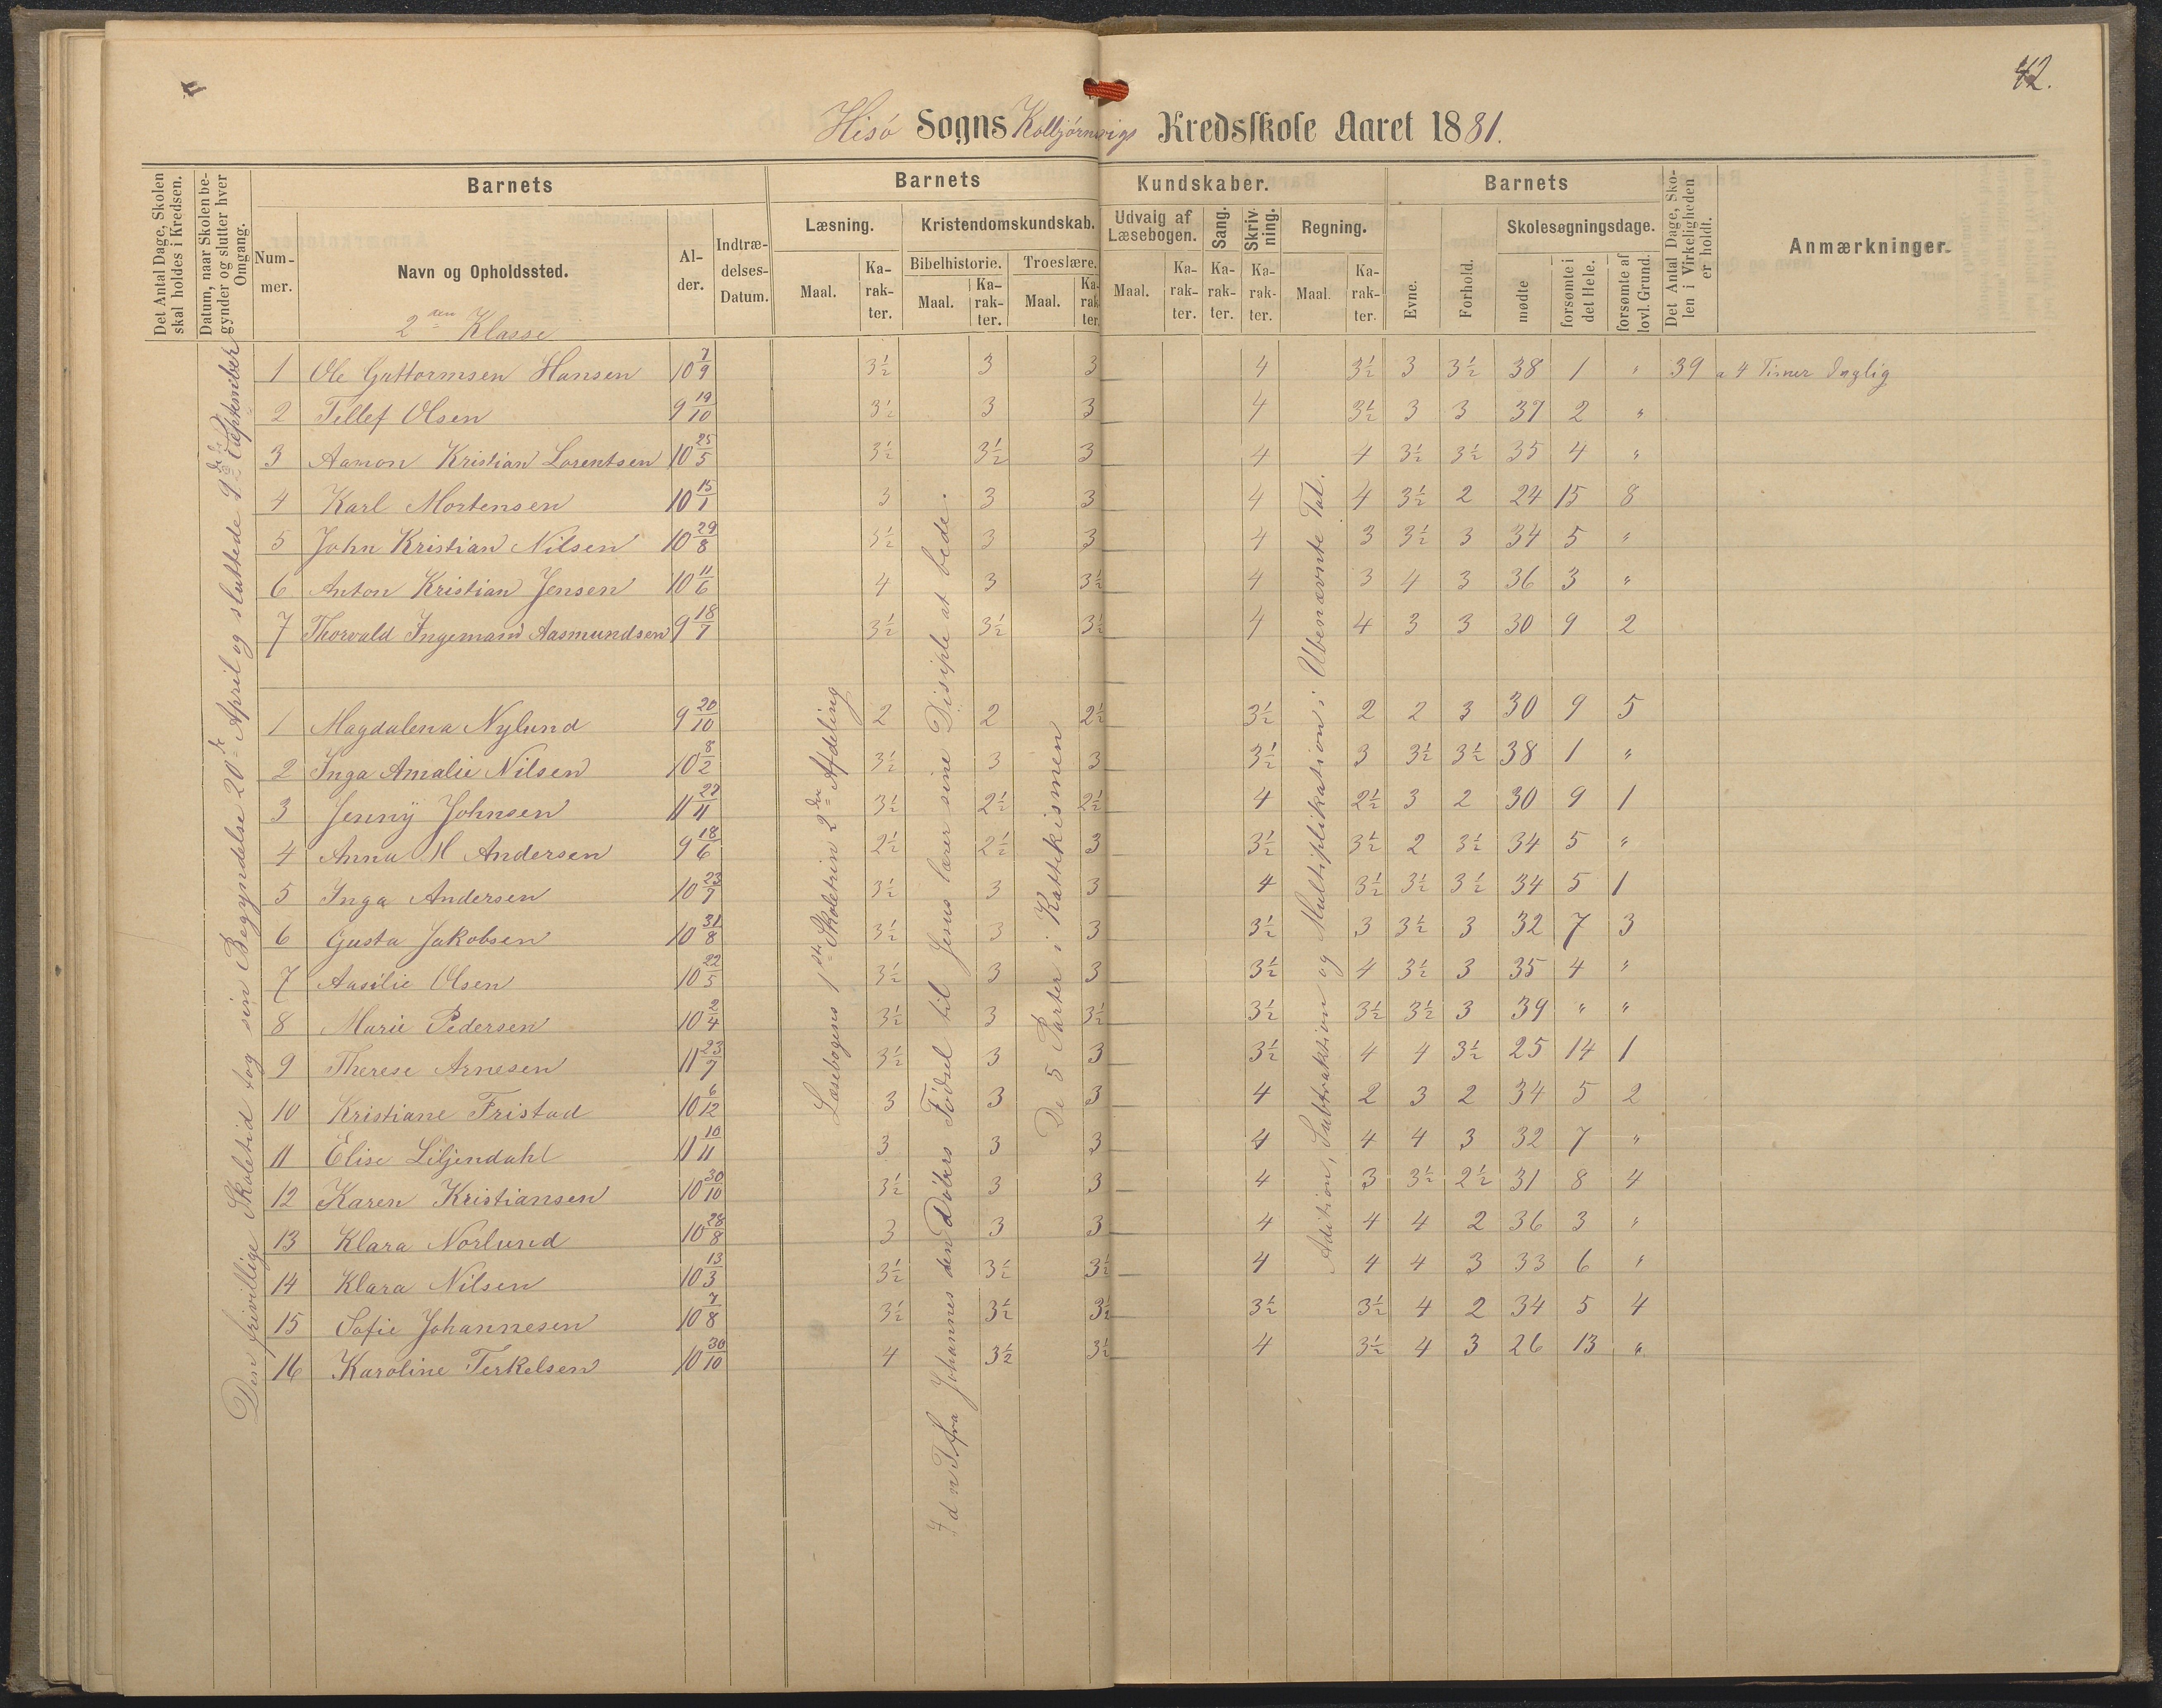 42.
Hisó Sogns Kolbjórnsvigs Kredsskole Aaret 1881.
Det Antal Dage, Skolen skal holdes i Kredsen.
Datum, naar Skolen begynder og slutter hver Omgang.
Barnets
Num-mer.
Navn og Opholdssted.
Al-der.
Indtræ-delses-Datum.
Barnets Kundskaber.
Læsning.
Maal.
Ka-rak-ter.
Kristendomskundskab.
Bibelhistorie.
Maal.
Ka-rak-ter.
Troeslære.
Maal.
Ka-rak-ter.
Udvalg af Læsebogen.
Maal.
Ka-rak-ter.
Sang.
Ka-rak-ter.
Skriv-ning.
Ka-rak-ter.
Regning.
Maal.
Ka-rak-ter.
Barnets
Evne.
Forhold.
Skolesøgningsdage.
mødte
forsømte i det Hele.
forsømte af lovl. Grund.
Det Antal Dage, Skolen i Virkeligheden er holdt.
Anmærkninger.
2den Klasse
Den frivillige Skoletid tog sin Begyndelse 20de April og sluttede 9de September
Læsebogens 1ste Skoletrin 2den Afdeling
fra Johannes den Döbers Födsel til Jesus lærer sine Disiple at bede.
De 5 Parter i Kattekismen
Adition, Subtraktion og Multiplikation i Ubenævnte Tal.
1 Ole Guttormsen Hansen 10 7/9 3½ 3 3 4 3½ 3 3½ 38 1 " 39 a 4 Timer daglig
2 Tellef Olsen 9 19/10 3½ 3 3 4 3½ 3 3 37 2 "
3 Aamon Kristian Lorentsen 10 25/5 3½ 3½ 3 4 4 3½ 3½ 35 4 "
4 Karl Mortensen 10 15/1 3 3 3 4 4 3½ 2 24 15 8
5 John Kristian Nilsen 10 29/8 3½ 3 3 4 3 3½ 3 34 5 "
6 Anton Kristian Jensen 10 11/6 4 3 3½ 4 3 4 3 36 3 "
7 Thorvald Ingemann Aasmundsen 9 18/7 3½ 3½ 3½ 4 4 3 3 30 9 2
1 Magdalena Nylund 9 20/10 2 2 2½ 3½ 2 2 3 30 9 5
2 Inga Amalie Nilsen 10 8/2 3½ 3 3 3½ 3 3½ 3½ 38 1 "
3 Jenny Johnsen 11 27/11 3½ 2½ 2½ 4 2½ 3 2 30 9 1
4 Anna M Andersen 9 18/6 2½ 2½ 3 3½ 3½ 2 3½ 34 5 "
5 Inga Andersen 10 23/7 3½ 3 3 4 3½ 3½ 3½ 34 5 1
6 Gusta Jakobsen 10 31/8 3½ 3 3 3½ 3 3½ 3 32 7 3
7 Aasilie Olsen 10 22/5 3½ 3 3 3½ 4 3½ 3 35 4 "
8 Marie Pedersen 10 2/4 3½ 3 3½ 3½ 3½ 3½ 3 39 " "
9 Therese Arnesen 11 23/7 3½ 3 3 3½ 4 4 3½ 25 14 1
10 Kristiane Fristad 10 6/12 3 3 3 4 2 3 2 34 5 2
11 Elise Liljendahl 11 10/11 3 3 3 4 4 4 3 32 7 "
12 Karen Kristiansen 10 30/10 3½ 3 3 4 3 3½ 2½ 31 8 4
13 Klara Norlund 10 28/8 3 3 3 4 4 4 2 36 3 "
14 Klara Nilsen 10 13/3 3½ 3½ 3½ 4 4 4 3 33 6 "
15 Sofie Johannesen 10 7/8 3½ 3½ 3½ 3½ 3½ 4 2 34 5 4
16 Karoline Terkelsen 10 30/10 4 3½ 3½ 4 3½ 4 3 26 13 "